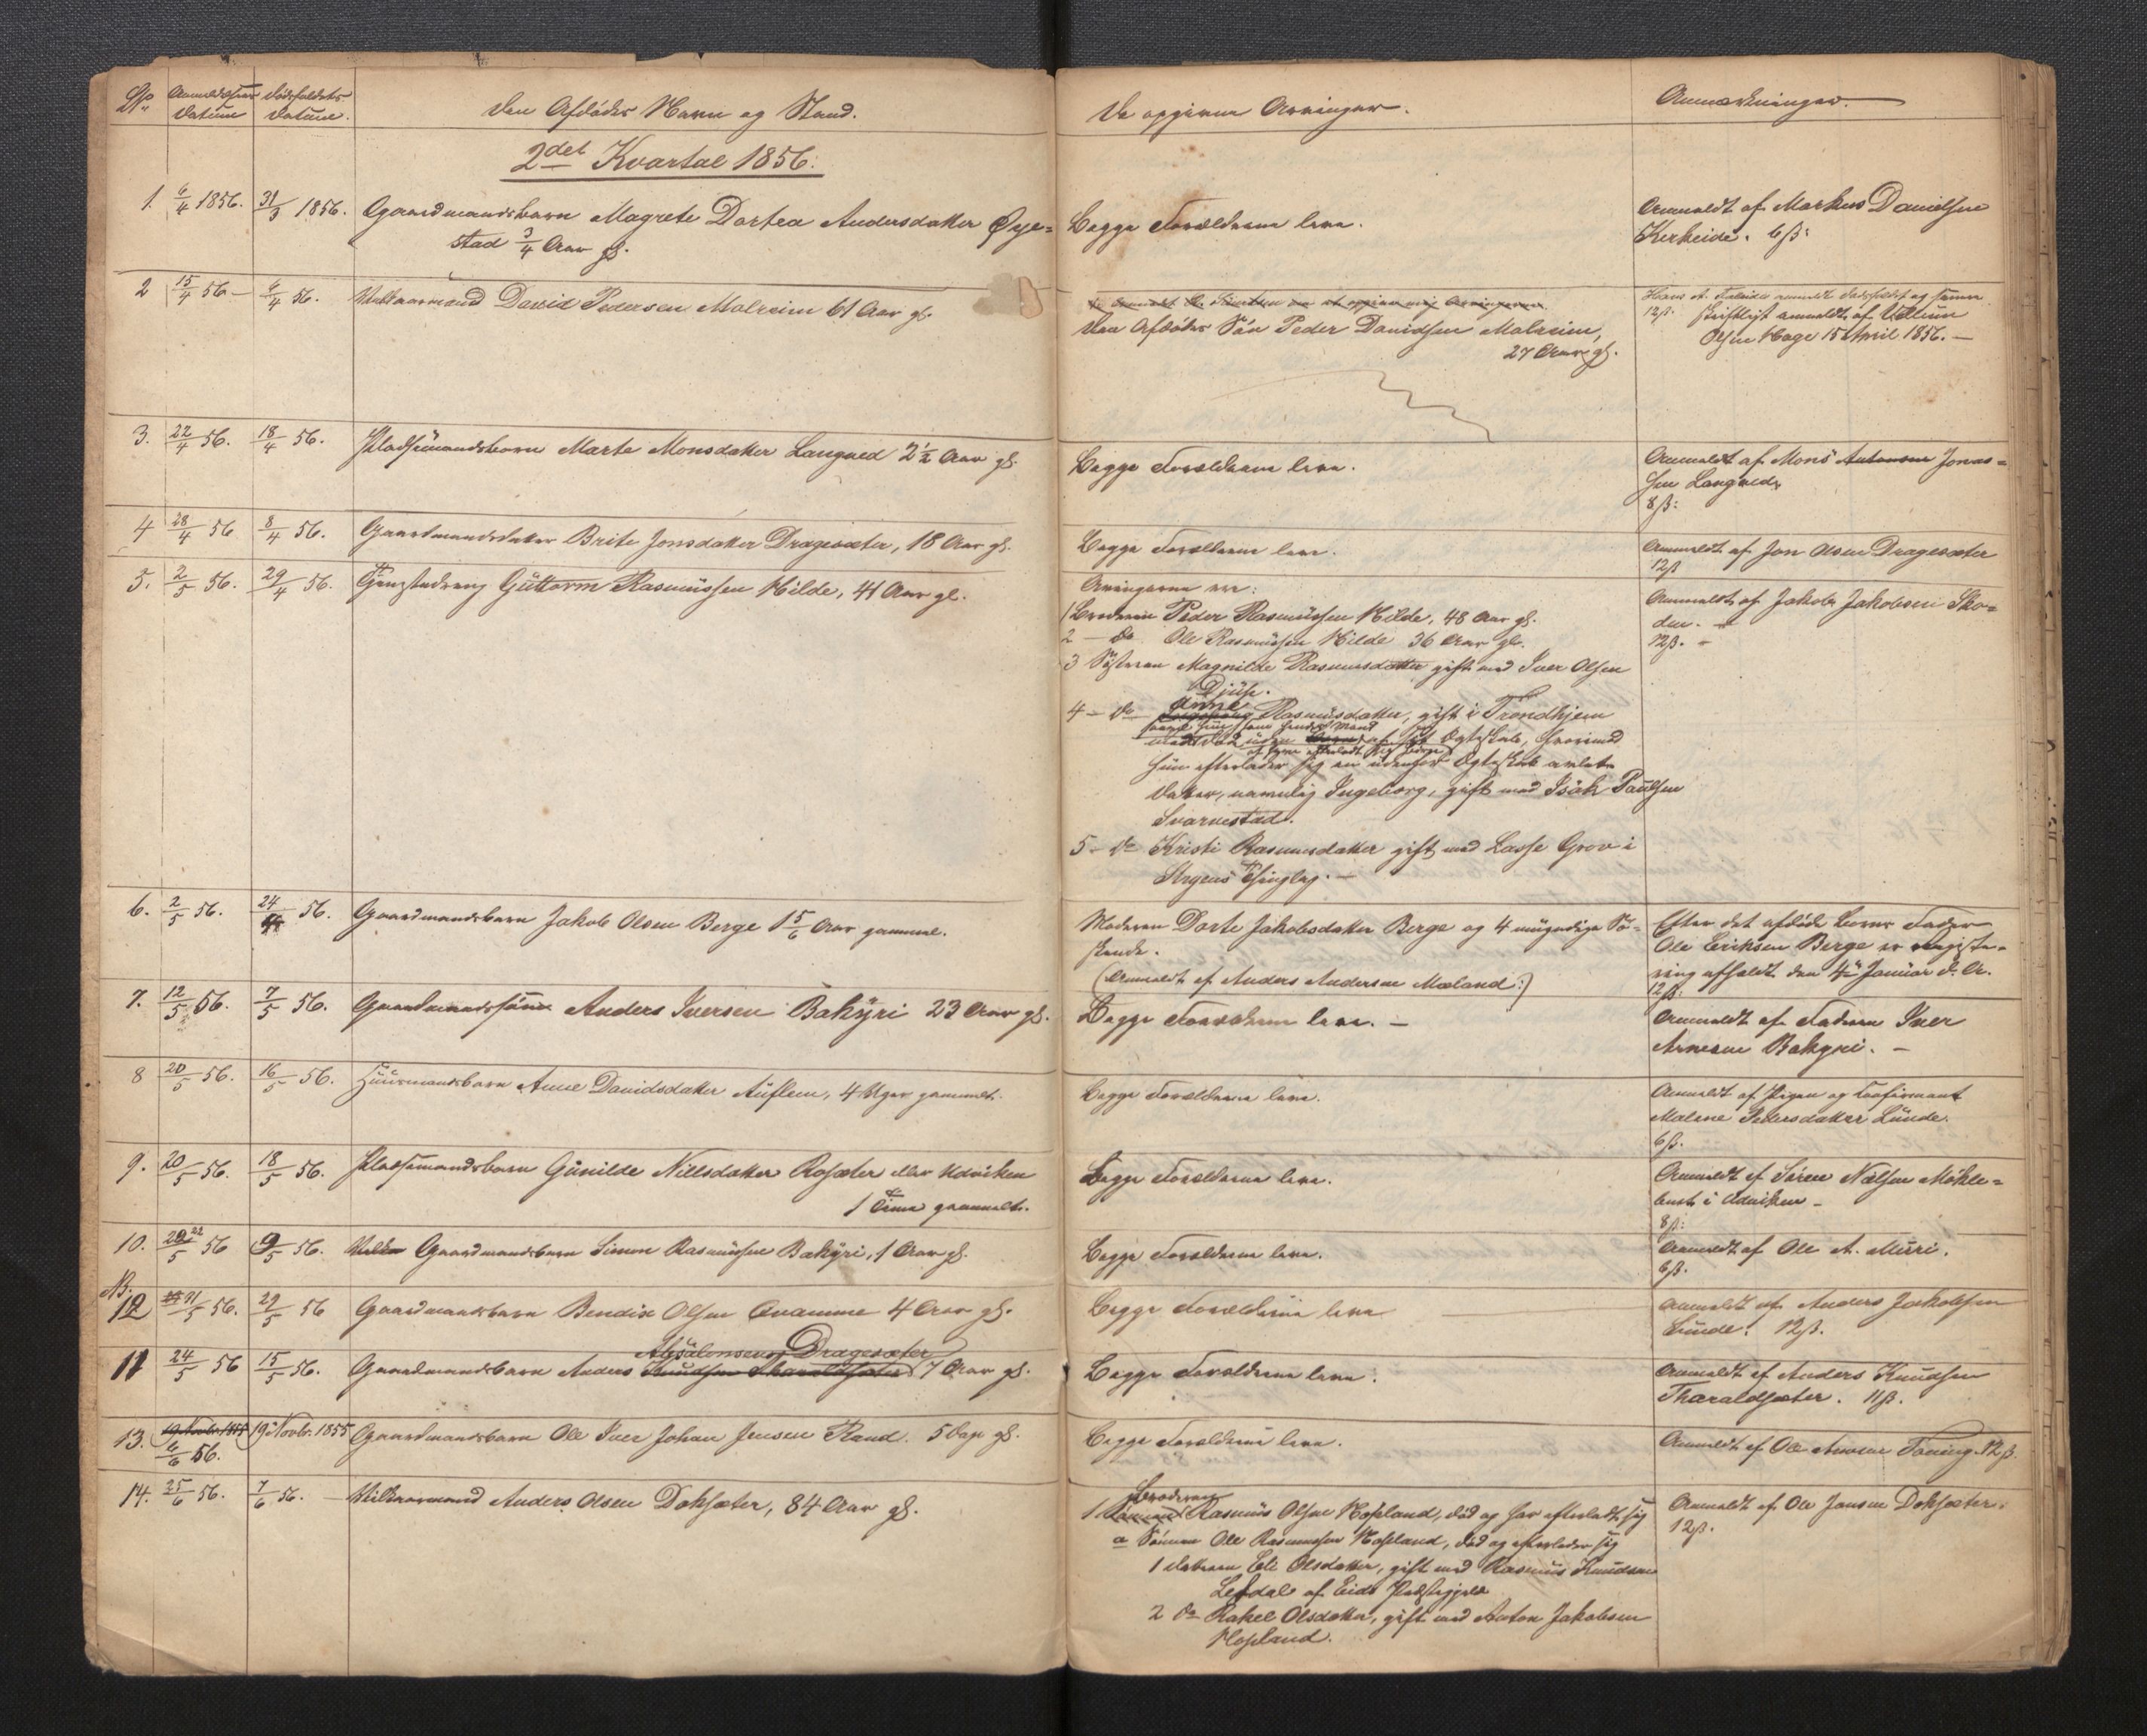 No. Anmeldelsens Datum Dødsfaldets Datum. Den Afdødes Navn og Stand. De opgivne Arvinger. Anmærkninger.
2det Kvartal 1856.
1. 6/4 1856. 31/3 1856. Gaardmandsbarn Magrete Dortea Andersdatter Øye=
stad 3/4 Aar gl.
Begge Forældrene leve.
Anmeldt af Markus Danielsen
Kirkeide. 6 ß.
2 15/4 56 – 4/4 56. Vilkaarmand David Pedersen Molreim 61 Aar gl.
Den Afdødes Søn Peder Davidsen Molreim,
27 Aar gl.
anmeldt Dødsfaldet og
12ß. skriftligt anmeldt af Villum
Olsen Hage 15 April 1856. –
3. 22/4 56. 18/4 56. Pladsemandsbarn Marte Monsdatter Langned 2 1/2 Aar gl.
Begge Forældrene leve.
Anmeldt af Mons Antonsen Jonas=
sen Langned
8 ß:
4 28/4 56 8/4 56. Gaardmandsdatter Brite Jonsdatter Dragesæter, 18 Aar gl.
Begge Forældrene leve.
Anmeldt af Jon Olsen Dragesæter
12ß
5. 2/5 56. 29/4 56. Guttorm Rasmussen Hilde, 41 Aar gl.
Arvingerne ere:
1 Broderen Peder Rasmussen Hilde, 48 Aar gl.
2 – Do Ole Rasmussen Hilde 36 Aar gl.
3 Søsteren Magnilde Rasmusdatter gift med Iver Olsen
Djuse.
4 – do Anne Rasmusdatter, gift i Trondhjem
hendes Mand
Ægteskab, hvorimod
hun efterlader sig en udenfor Ægteskab avlet
Datter, navnlig Ingeborg, gift med Isak Paulsen
Svarvestad.
5 – do Kristi Rasmusdatter gift med Lasse Grov i
Stryens Thinglag. –
Anmeldt af Jakob Jakobsen Sko=
den. –
12ß. –
6. 2/5 56. 24/4 56. Gaardmandsbarn Jakob Olsen Berge 1 5/6 Aar gammel.
Moderen Dorte Jakobsdatter Berge og 4 myndige Sø=
skende.
(Anmeldt af Anders Andersen Mæland:)
Efter det afdøde Barns Fader
Ole Eriksen Berge er Registe=
ring afholdt den 4de Januar d. A.
12ß:
7. 12/5 56. 7/5 56. Gaardmandssøn Anders Iversen Bakyri 23 Aar gl.
Begge Forældrene leve. –
Anmeldt af Faderen Iver
Arnesen Bakyri. –
8 20/5 56. 16/5 56. Huusmandsbarn Anne Davidsdatter Auflem, 4 Uger gammelt.
Begge Forældrene leve.
Anmeldt af Pigen og Confirmant
Malene Pedersdatter Lunde.
6ß.
9. 20/5 56. 18/5 56. Pladsemandsbarn Gunilde Nillsdatter Rosæter eller Udviken
1 Time gammelt.
Begge Forældrene leve.
Anmeldt af Søren Nilsen Mykle=
bust i Udviken –
8ß:
10. 22/5 56 9/5 56. Gaardmandsbarn Simon Rasmussen Bakyri, 1 Aar gl.
Begge Forældrene leve.
Anmeldt af Ole A. Muri.
6ß.
N.
12 31/5 56. 29/5 56 Gaardmandsbarn Bendix Olsen Qvamme 4 Aar gl.
Begge Forældrene leve
Anmeldt af Anders Jakobsen
Lunde. 12ß.
11 24/5 56 15/5 56. Gaardmandsbarn Anders Knudsen Tharaldsæter 7 Aar gl.
Absalonsen Dragesæter
Begge Forældrene leve.
Anmeldt af Anders Knudsen
Tharaldsæter. 11ß.
13. 19 Novbr. 1855 19 Novbr. 1855 Gaardmandsbarn Ole Iver Johan Jensen Rand. 5 Dage gl.
6/6 56.
Begge Forældrene leve.
Anmeldt af Ole Arnesen Taning. 12ß.
14. 25/6 56. 7/6 56. – Vilkaarmand Anders Olsen Doksæter, 84 Aar gl.
Broderen
1 Sønnen Rasmus Olsen Hopland, død og har efterladt sig
a Sønnen Ole Rasmussen Hopland, død og efterlader sig
1 Datteren Eli Olsdatter, gift med Rasmus Knudsen
Lefdal af Eids Præstegjeld
2 do Rakel Olsdatter, gift med Anton Jakobsen
Hopland.
Anmeldt af Ole Jonsen Doksæter.
12ß.